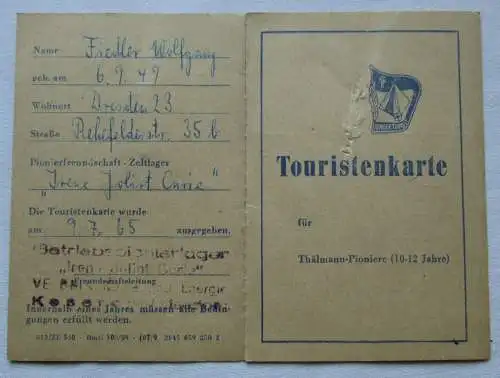 Name Fiedler Wolfgang
geb. am 6. 9. 49
Wohnort Dresden 23
Straße Rehefelderstr. 35 b
Pionierfreundschaft - Zeltlager
"Irene Joliot Curie"
Die Touristenkarte wurde
am 9. 7. 65 ausgegeben.
Betriebspionierlager
"Irene Joliot Curie"
Freundschaftsleitung
VE Energie
Innerhalb eines Jahres müssen alle Bedin-
gungen erfüllt werden.
JUNGER TOURIST
Touristenkarte
für
Thälmann-Pioniere (10-12 Jahre)